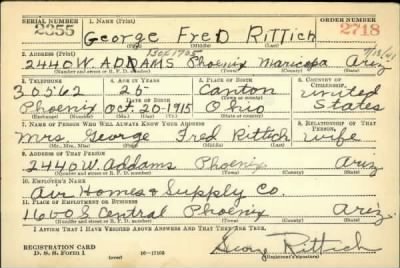 SERIAL NUMBER 1. NAME (Print) ORDER NUMBER
2355 George Fred Rittich 2718
(First) (Middle) (Last)
2. ADDRESS (Print) Box 1905 9/12/41
2440 W. ADDAMS Phoenix Maricopa Ariz
(Number and street or R. F. D. number) (Town) (County) (State)
3. TELEPHONE 4. AGE IN YEARS 5. PLACE OF BIRTH 6. COUNTRY OF CITIZENSHIP
30562 25 Canton United
DATE OF BIRTH (Town or county)
Phoenix Oct-20-1915 Ohio States
(Exchange) (Mo.) (Day) (Yr.) (State or country)
7. NAME OF PERSON WHO WILL ALWAYS KNOW YOUR ADDRESS 8. RELATIONSHIP OF THAT PERSON
Mrs. George Fred Rittich wife
(Mr., Mrs., Miss) (First) (Middle) (Last)
9. ADDRESS OF THAT PERSON
2440 W. Addams Phoenix Ariz
(Number and street or R. F. D. number) (Town) (County) (State)
10. EMPLOYER'S NAME
Air Homes & Supply Co.
11. PLACE OF EMPLOYMENT OR BUSINESS
1600 S Central Phoenix Ariz.
(Number and street or R. F. D. number) (Town) (County) (State)
I AFFIRM THAT I HAVE VERIFIED ABOVE ANSWERS AND THAT THEY ARE TRUE.
REGISTRATION CARD
D. S. S. Form 1 (over) 16-17105 George Rittich
(Registrant's signature)